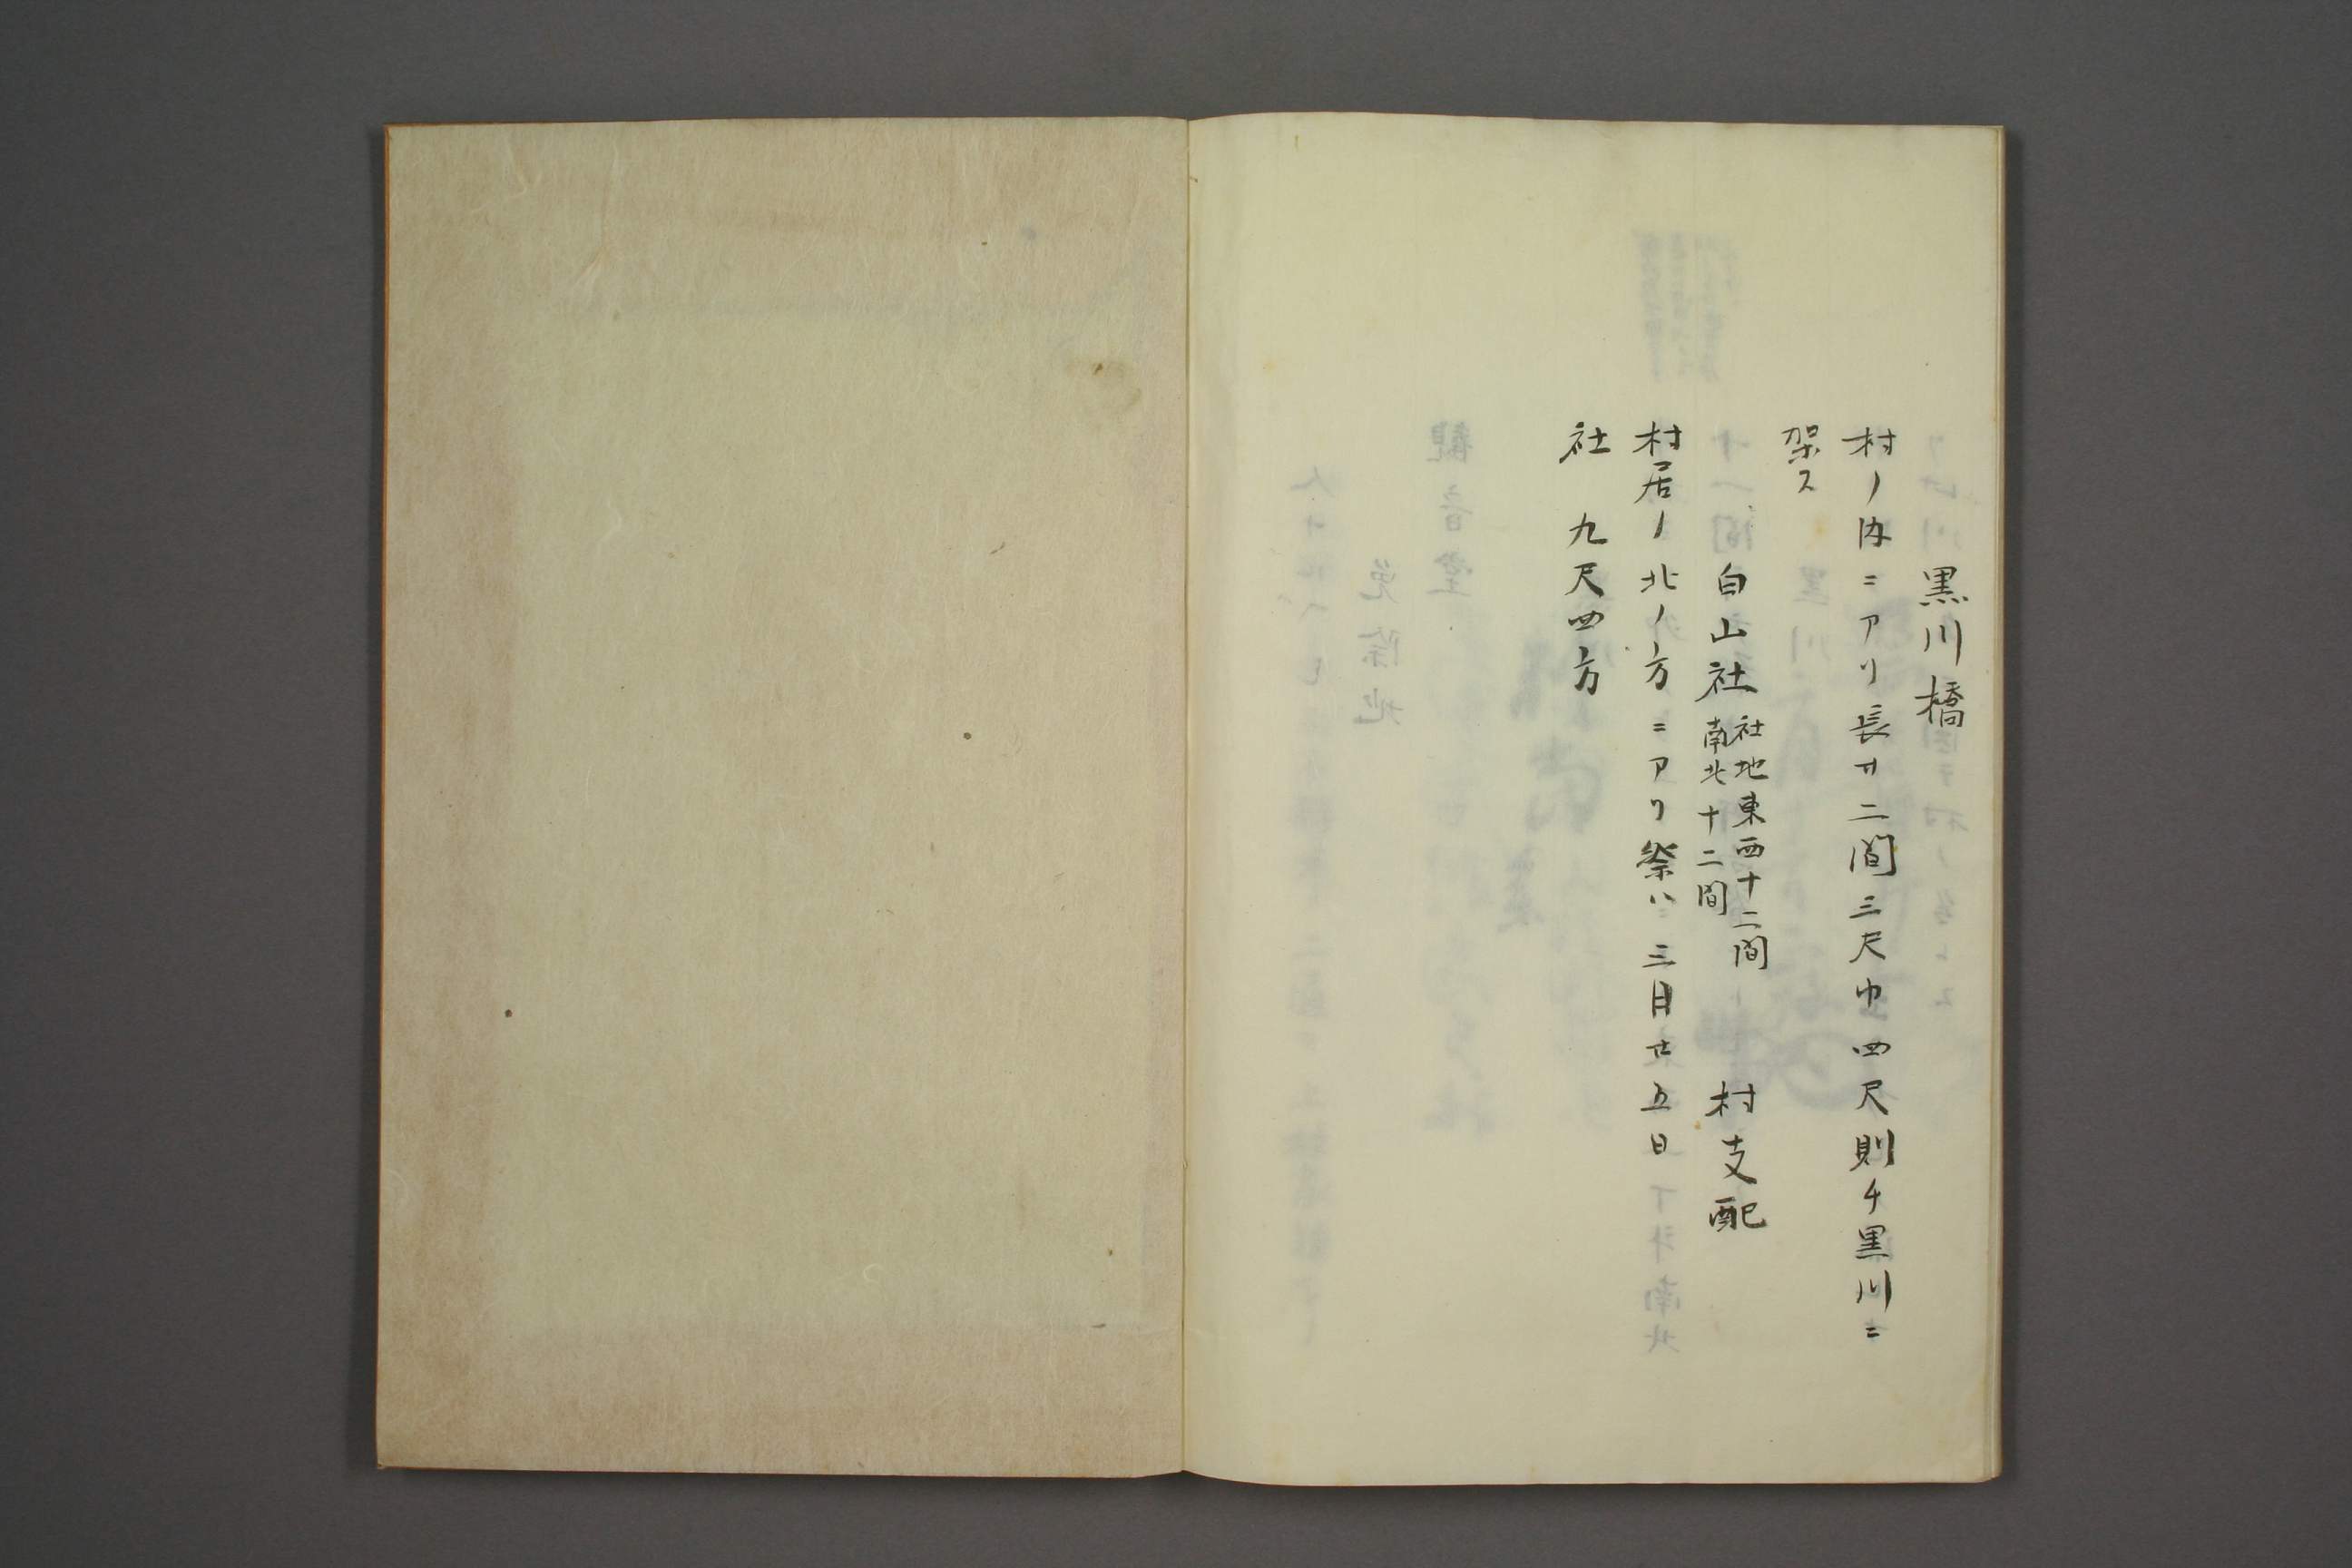 黒川橋
村ノ内ニアリ長廿二間三尺巾四尺則チ黒川ニ
架ス
白山社
社地東西十二間
南北十二間
村支配
村居ノ北ノ方ニアリ祭ハ三月廿五日
社九尺四方